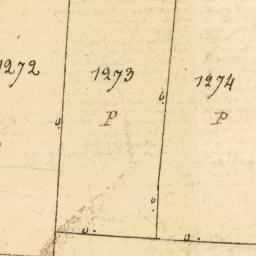 1272
1273
1274
P
P